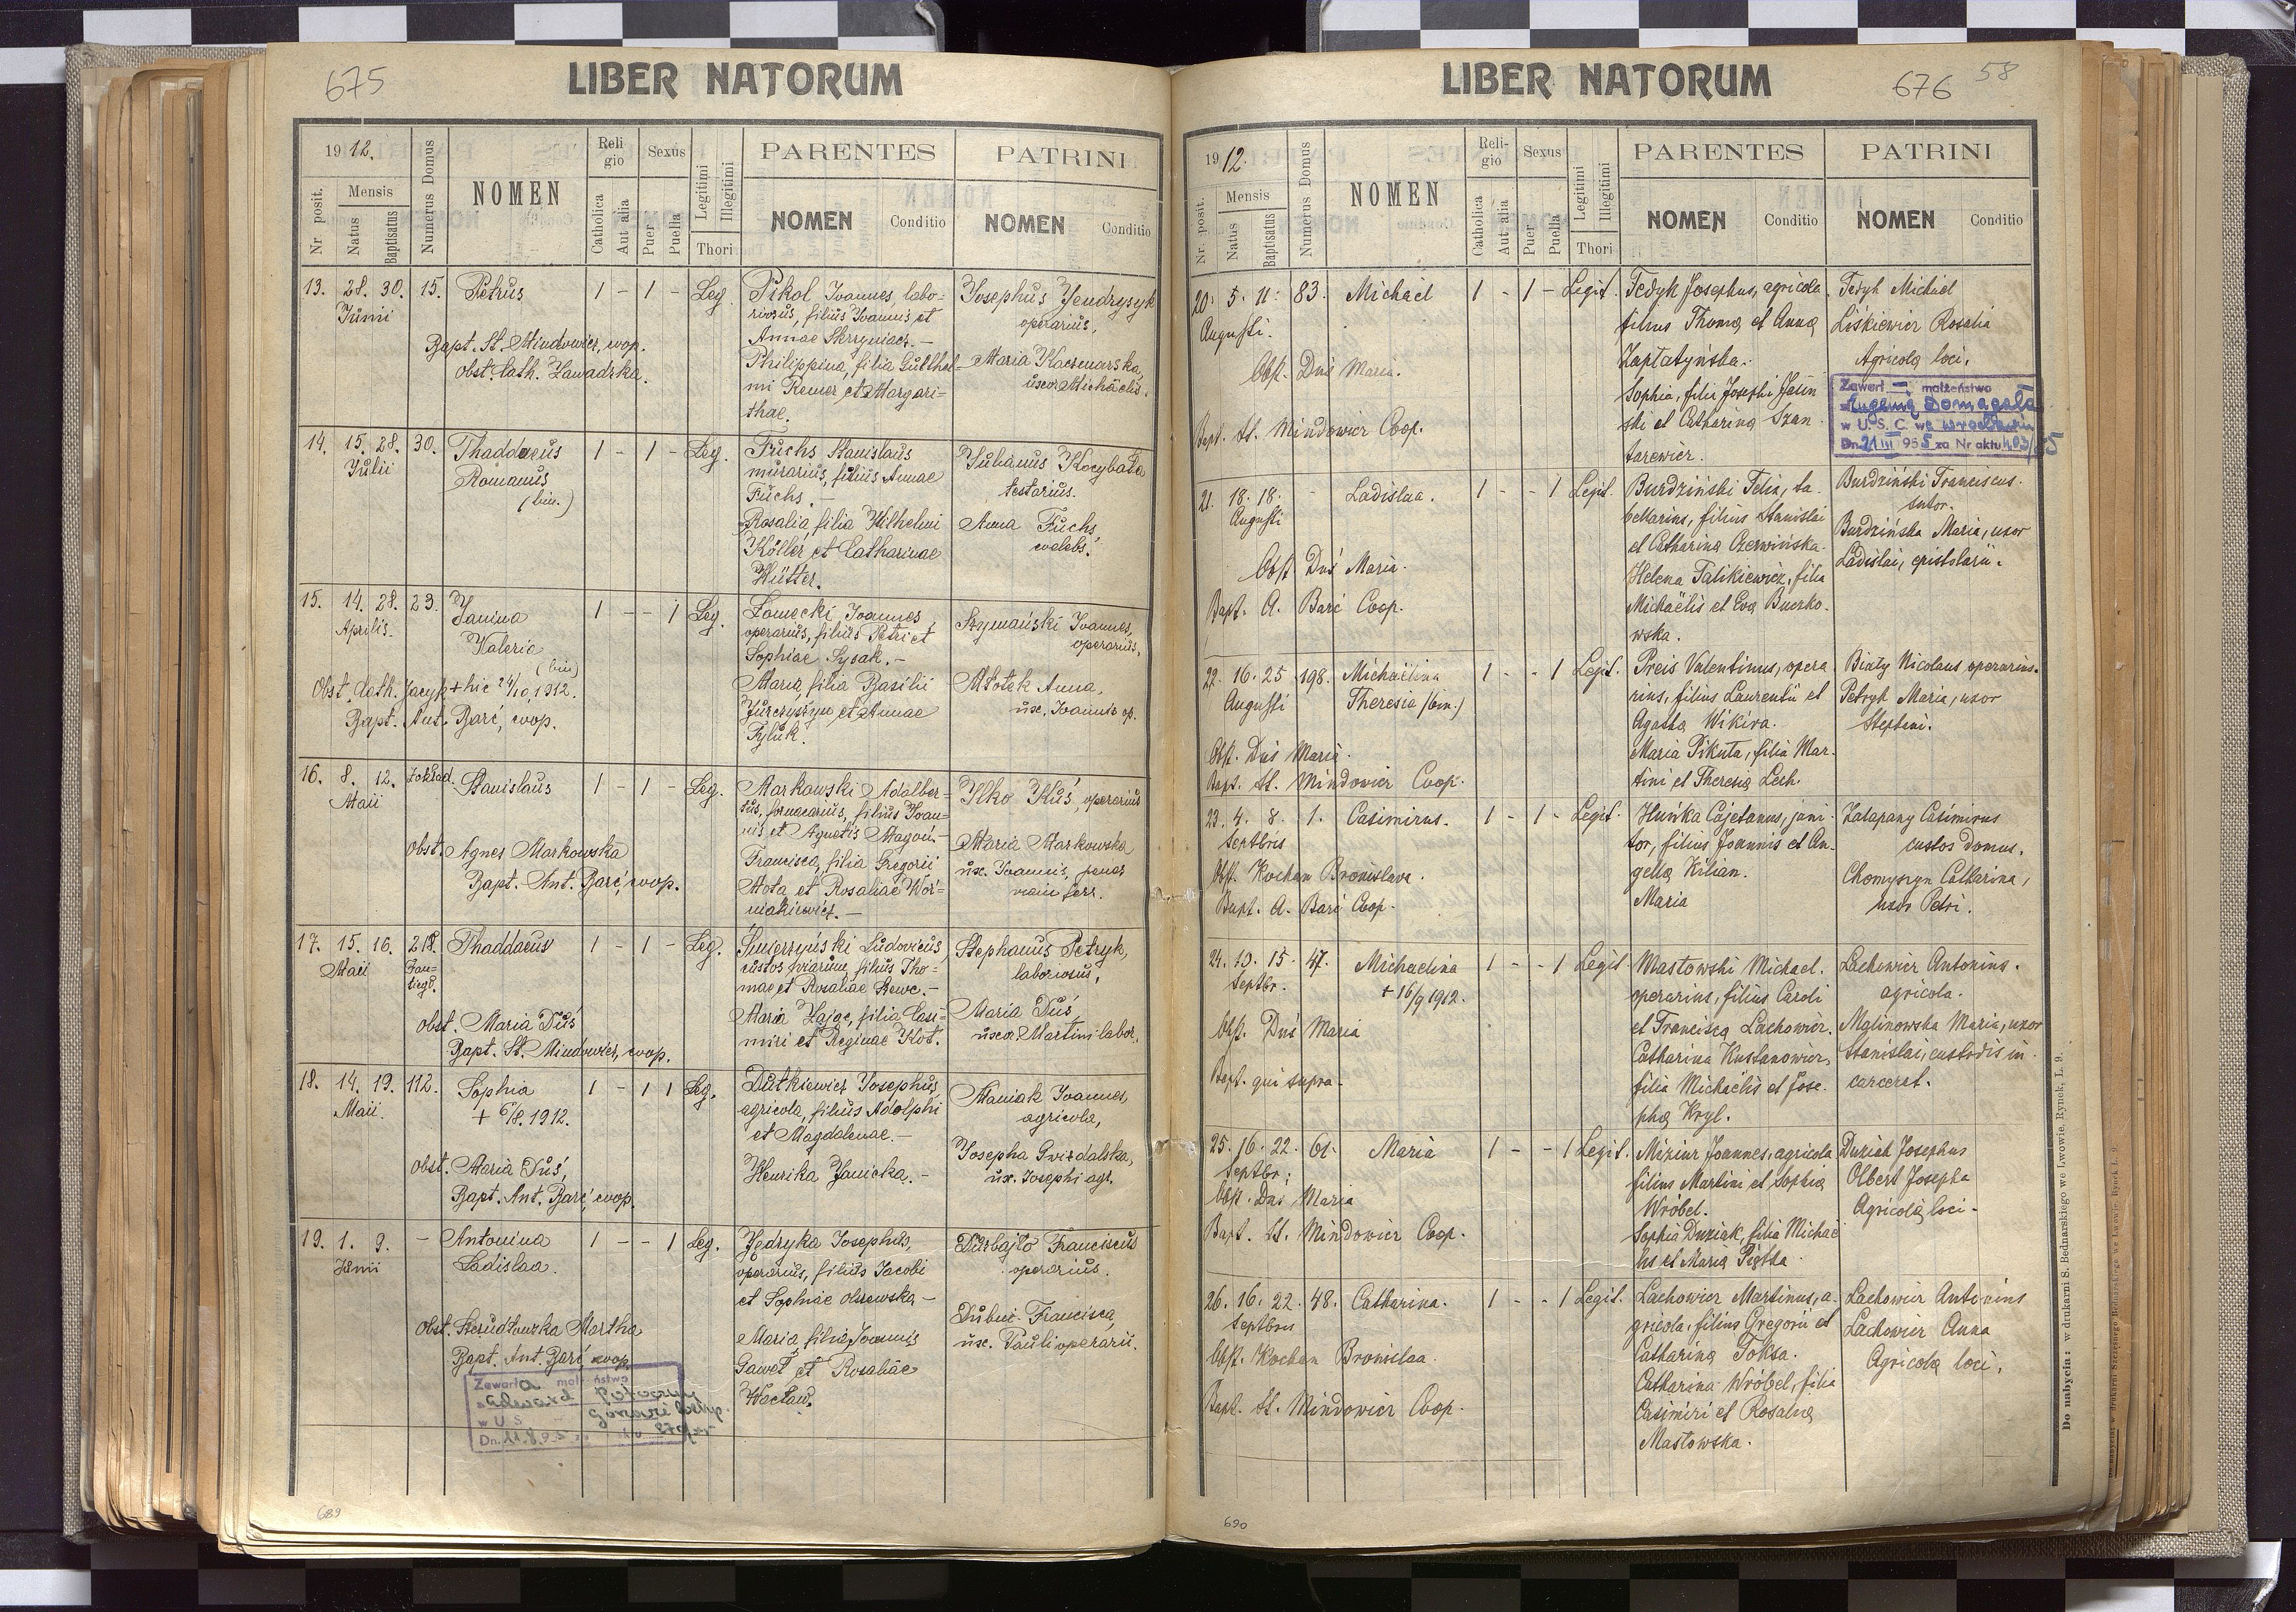 675
LIBER NATORUM
1912.
Nr. posit.
Mensis
Natus
Baptisatus
Numerus Domus
NOMEN
Religio
Catholica
Aut alia
Sexus
Puer
Puella
Legitimi
Illegitimi
Thori
PARENTES
NOMEN Conditio
PATRINI
NOMEN Conditio
13. 28. 30. 15. Petrus 1 - 1 - Leg.
Junii
Bapt. St. Mindowicz, coop.
Obst. Cath. Zawadzka.
Pikol Joannes, labo-
riosus, filius Joannis et
Annae Skrzyniarz. -
Philippina, filia Guilhel-
mi Remer et Margari-
thae.
Josephus Jendrysyk
operarius,
Maria Kaczmarska,
uxor Michaelis.
14. 15. 28. 30. Thaddaeus 1 - 1 - Leg.
Julii
Romanus
(bin.)
Fuchs Stanislaus
murarius, filius Annae
Fuchs. -
Rosalia, filia Wilhelmi
Köller et Catharinae
Hütter.
Julianus Kocybała
testarius.
Anna Fuchs,
coelebs.
15. 14. 28. 23. Janina 1 - - 1 Leg.
Aprilis.
Valeria
(bin)
Obst. Cath. Jacyk + hic 24/10 1912.
Bapt. Ant. Barć, coop.
Łomecki Joannes,
operarius, filius Petri et
Sophiae Sysak. -
Maria, filia Basilii
Jurczyszyn et Annae
Szymański Joannes,
operarius,
Młotek Anna,
ux. Joannis op.
16. 8. 12. Stanislaus 1 - 1 - Leg.
Maii
Obst. Agnes Markowska
Bapt. Ant. Barć, coop.
Markowski Adalber-
tus, fornacarius, filius Joan-
nis et Agnetis Magoń. -
Francisca, filia Gregorii
Mota et Rosaliae Woź-
niakiewicz. -
Ilko Kuś, operarius
Maria Markowska
ux. Joannis, penes
viam ferr.
17. 15. 16. 218. Thaddaeus 1 - 1 - Leg.
Maii
Obst. Maria Duś
Bapt. St. Mindowicz, coop.
Śnigerzyński Ludovicus,
custos viarum, filius Tho-
mae et Rosaliae Szewc. -
Maria Zając, filia Casi-
miri et Reginae Kot.
Stephanus Petryk,
laboriosus,
Maria Duś,
uxor Martini labor.
18. 14. 19. 112. Sophia 1 - 1 1 Leg.
Maii.
+ 6/8. 1912.
Obst. Maria Duś,
Bapt. Ant. Barć, coop.
Dutkiewicz Josephus
agricola, filius Adolphi
et Magdalenae. -
Henrika Janicka. -
Maniak Joannes,
agricola,
Josepha Gwizdalska,
ux. Josephi agr.
19. 1. 9. - Antonina 1 - - 1 Leg.
Junii
Ladislaa.
Obst. Martha
Bapt. Ant. Barć, coop.
Jędryka Josephus,
operarius, filius Jacobi
et Sophiae Olszewska -
Maria, filia Joannis
Gaweł et Rosaliae
Wacław.
Durbajło Franciscus
operarius.
Francisca,
ux. Pauli operarii.
Zawarła małżeństwo
w U.S.
Dn. 11.8.95
689
LIBER NATORUM
676
58
1912.
Nr. posit.
Mensis
Natus
Baptisatus
Numerus Domus
NOMEN
Religio
Catholica
Aut alia
Sexus
Puer
Puella
Legitimi
Illegitimi
Thori
PARENTES
NOMEN Conditio
PATRINI
NOMEN Conditio
20. 5. 11. 83. Michael 1 - 1 - Legit.
Augusti.
Obst. Duś Maria.
Bapt. St. Mindowicz Coop.
Fedyk Josephus, agricola
filius Thomę et Anna
Kaptatyńska.
Sophia, filia Josephi Jasin
ski et Catharinę Szan
tarewicz.
Fedyk Michael
Liśkiewicz Rosalia
Agricolę loci.
Zawarł małżeństwo
z Eugenią Domagała
w U.S.C. we Wrocławiu
Dn. 21 III 1955 za Nr aktu 403/55
21. 18. 18. - Ladislaa. 1 - - 1 Legit.
Augusti
Obst. Duś Maria.
Bapt. A. Barć Coop.
Burdziński Felix, ta-
bellarius, filius Stanislai
et Catharinę Czerwińska.
Helena Falikiewicz, filia
Michaëlis et Evę Buczko-
wska.
Burdziński Franciscus.
sutor.
Burdzińska Maria, uxor
Ladislai, epistolarii.
22. 16. 25 198. Michaëlina 1 - - 1 Legit.
Augusti
Theresia /bin./
Obst. Duś Maria.
Bapt. St. Mindowicz Coop.
Preis Valentinus, opera
rius, filius Laurentii et
Agatha Wikira.
Maria Pikuta, filia Mar-
tini et Theresię Lech.
Biały Nicolaus operarius.
Petryk Maria, uxor
Stephani.
23. 4. 8. 1. Casimirus. 1 - 1 - Legit.
Septbris
Obst. Kochan Bronislava.
Bapt. A. Barć Coop.
Huńka Cajetanus, jani-
tor, filius Joannis et An-
gelę Kilian.
Maria
Zatapany Casimirus
custos domus.
Chomyszyn Catharina,
uxor Petri.
24. 19. 15. 47. Michaelina 1 - - 1 Legit.
Septbr.
+ 16/9 1912.
Obst. Duś Maria
Bapt. qui supra.
Mastowski Michael.
operarius, filius Caroli
et Franciscę Lachowicz.
Catharina Kustanowicz,
filia Michaëlis et Jose-
phę Kryl.
Lachowicz Antonius.
agricola.
Malinowska Maria, uxor
Stanislai, custodis in
carcerat.
25. 16. 22. 61. Maria 1 - - 1 Legit.
Septbr.
Obst. Duś Maria
Bapt. St. Mindowicz Coop.
Miziur Joannes, agricola
filius Martini et Sophia
Wróbel.
Sophia Duziak, filia Michaë
lis et Maria Piętka.
Duziak Josephus
Olbert Josepha
Agricolę loci.
26. 16. 22. 48. Catharina. 1 - - 1 Legit.
Septbris
Obst. Kochan Bronislaa.
Bapt. St. Mindowicz Coop.
Lachowicz Martinus, a-
gricola, filius Gregorii et
Catharinę Toksa.
Catharina Wróbel, filia
Casimiri et Rosalię
Mastowska.
Lachowicz Antonius
Lachowicz Anna
Agricolę loci.
Do nabycia: w drukarni S. Bednarskiego we Lwowie, Rynek, L. 9.
690